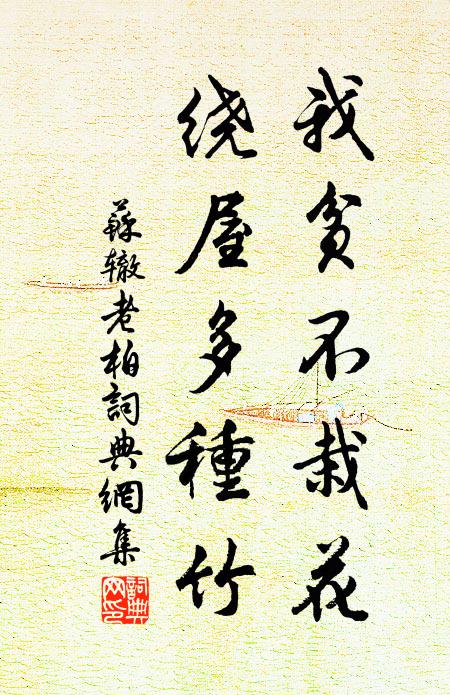 我贫不栽花
绕屋多種竹
蘇辙老柏詞典網集
詞典网印